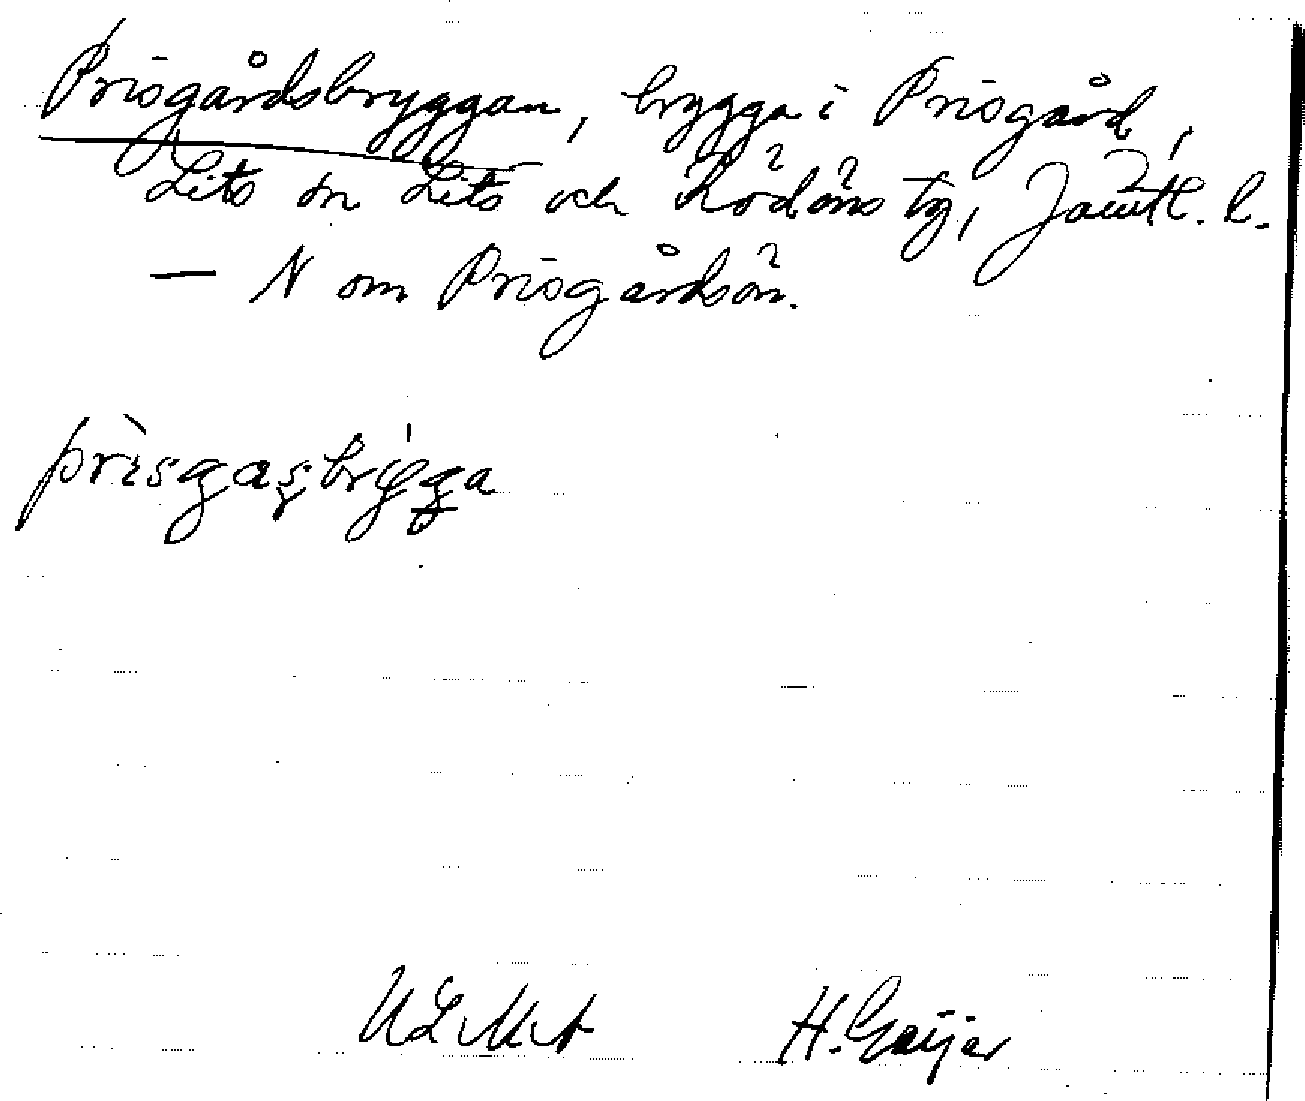 Prisgårdsbryggan, brygga i Prisgård,
Lits sn Lits och Rödöns tg, Jämtl. l.
— N om Prisgårdsön.
prìsgasbrýgga
ULMA H. Geijer